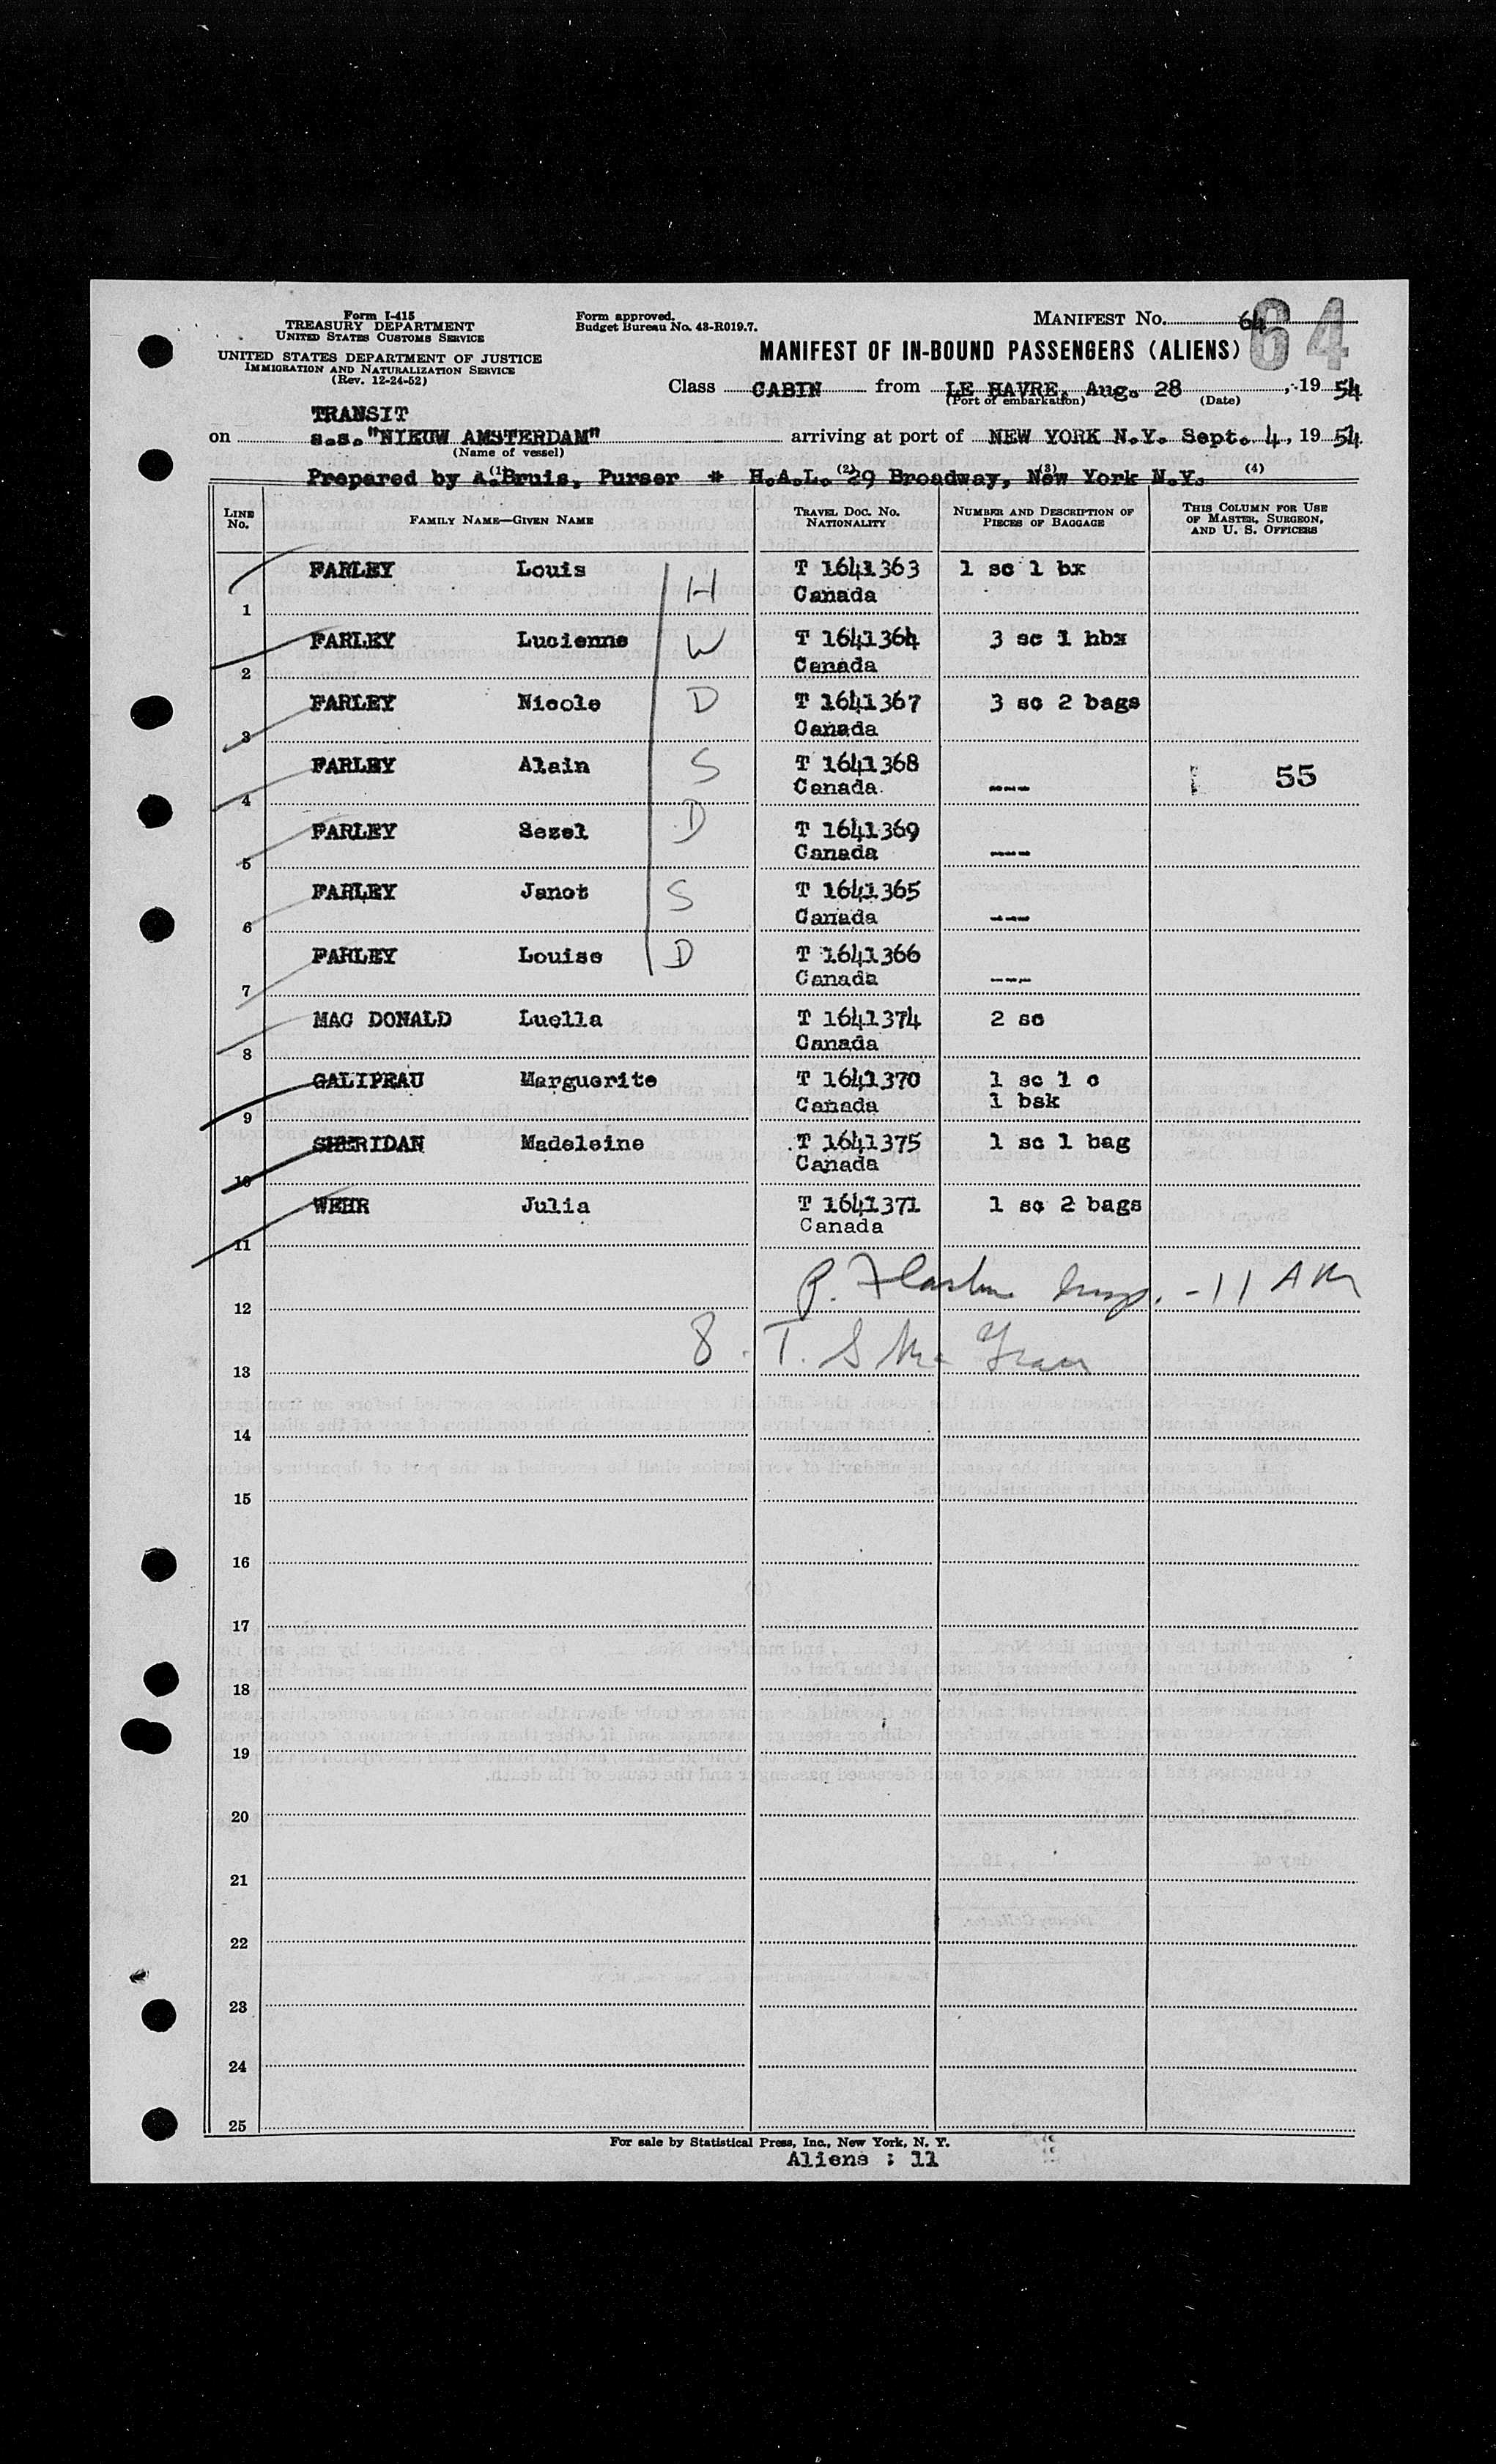 Form I-415
TREASURY DEPARTMENT
UNITED STATES CUSTOMS SERVICE
UNITED STATES DEPARTMENT OF JUSTICE
IMMIGRATION AND NATURALIZATION SERVICE
(Rev. 12-24-52)
Form approved.
Budget Bureau No. 43-R019.7.
MANIFEST NO. 64
64
MANIFEST OF IN-BOUND PASSENGERS (ALIENS)
Class CABIN from LE HAVRE, Aug. 28, 19 54
(Port of embarkation) (Date)
TRANSIT
on s.s."NIEUW AMSTERDAM" arriving at port of NEW YORK N.Y. Sept. 4, 19 54
(Name of vessel)
Prepared by A.Bruis, Purser * H.A.L. 29 Broadway, New York N.Y.
(1) (2) (3) (4)
LINE NO. FAMILY NAME—GIVEN NAME TRAVEL DOC. NO. NATIONALITY NUMBER AND DESCRIPTION OF PIECES OF BAGGAGE THIS COLUMN FOR USE OF MASTER, SURGEON, AND U. S. OFFICERS
1 FARLEY Louis H T 1641363 Canada 1 sc 1 bx
2 FARLEY Lucienne W T 1641364 Canada 3 sc 1 hbx
3 FARLEY Nicole D T 1641367 Canada 3 sc 2 bags
4 FARLEY Alain S T 1641368 Canada ---- 55
5 FARLEY Sezel D T 1641369 Canada ----
6 FARLEY Janot S T 1641365 Canada ----
7 FARLEY Louise D T 1641366 Canada ----
8 MAC DONALD Luella T 1641374 Canada 2 sc
9 GALIPEAU Marguerite T 1641370 Canada 1 sc 1 c 1 bsk
10 SHERIDAN Madeleine T 1641375 Canada 1 sc 1 bag
11 WEHR Julia T 1641371 Canada 1 sc 2 bags
12 P. Insp. - 11 AM
13 8. T.
14
15
16
17
18
19
20
21
22
23
24
25
For sale by Statistical Press, Inc., New York, N. Y.
Aliens : 11